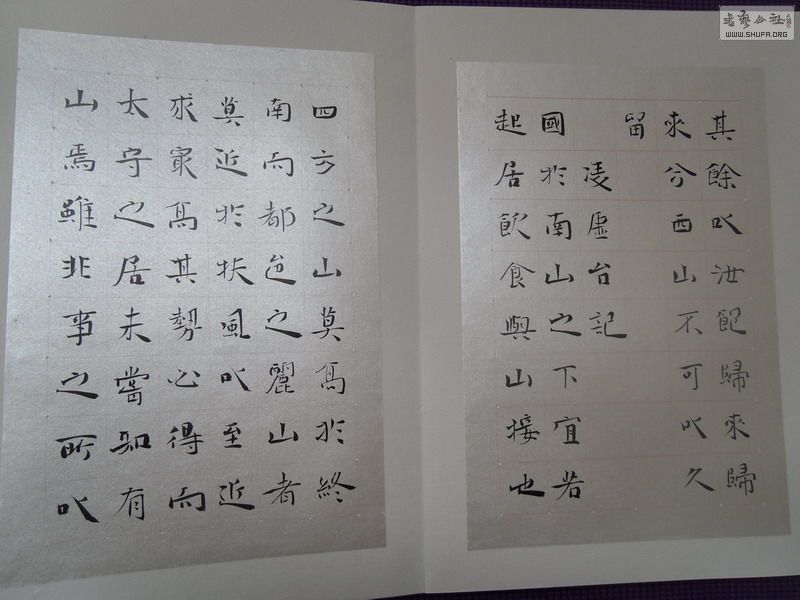 其餘以汝飽歸來歸
來兮西山不可以久
留
凌虛台記
國於南山之下宜若
起居飲食與山接也
四方之山莫高於終
南而都邑之麗山者
莫近於扶風以至近
求最高其勢必得而
太守之居未嘗知有
山焉雖非事之所以
書藝公社
WWW.SHUFA.ORG